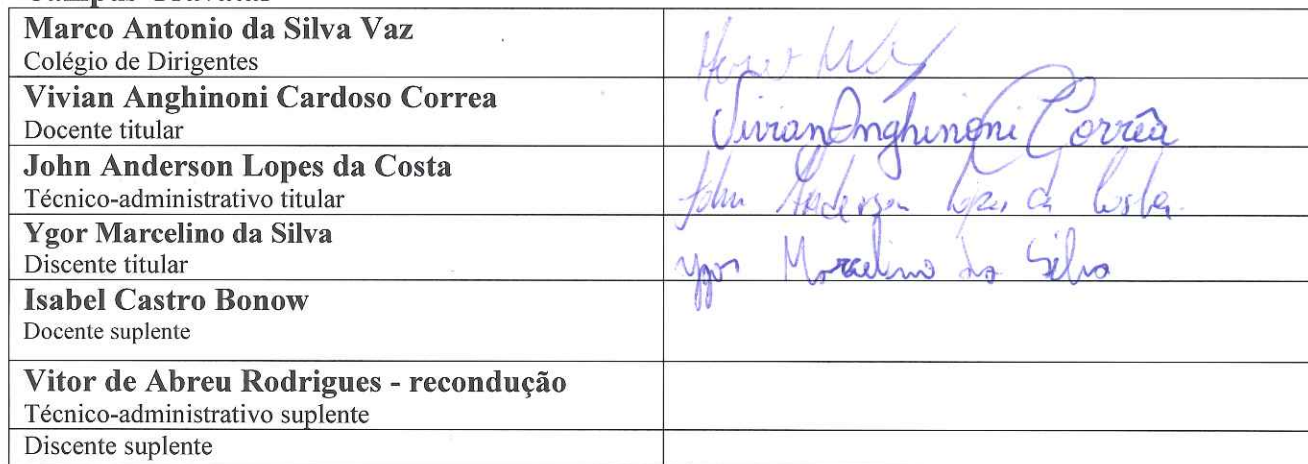 Marco Antonio da Silva Vaz
Colégio de Dirigentes
Vivian Anghinoni Cardoso Correa
Docente titular
Vivian Anghinoni Corrêa
John Anderson Lopes da Costa
Técnico-administrativo titular
John Anderson Lopes da Costa
Ygor Marcelino da Silva
Discente titular
Ygor Marcelino da Silva
Isabel Castro Bonow
Docente suplente
Vitor de Abreu Rodrigues - recondução
Técnico-administrativo suplente
Discente suplente